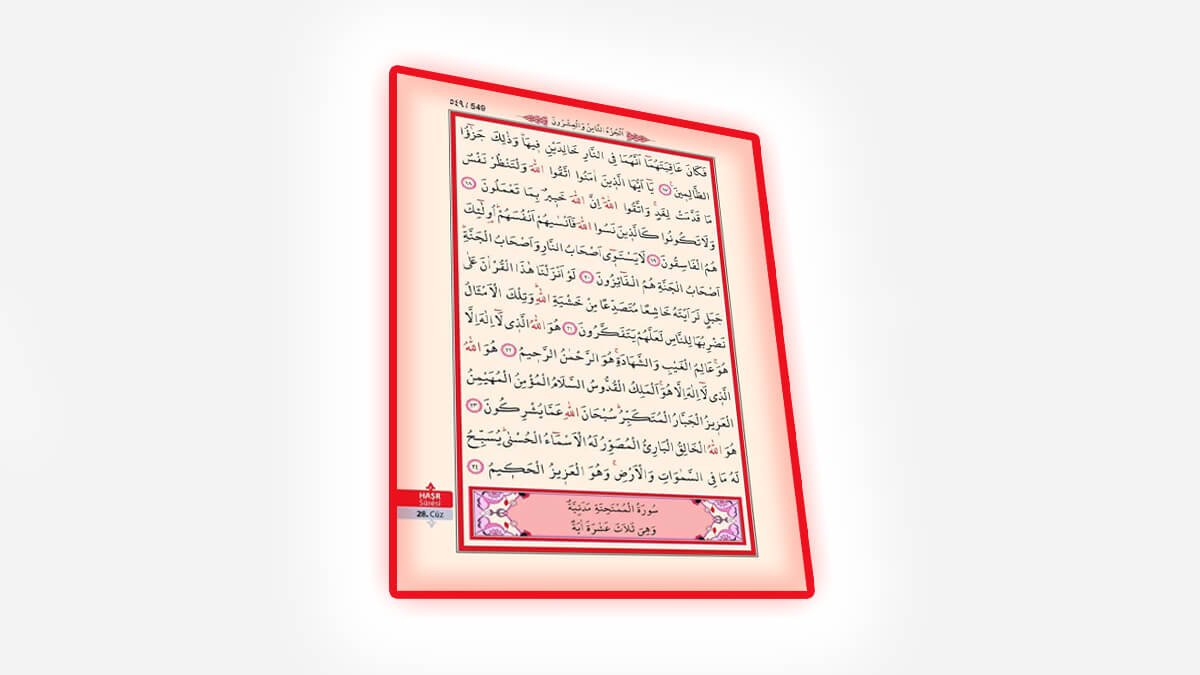 ٥٤٩ / 549
اَلْجُزْءُ الثَّامِنُ وَالْعِشْرُونَ
فَكَانَ عَاقِبَتَهُمَٓا اَنَّهُمَا فِي النَّارِ خَالِدَيْنِ ف۪يهَاۜ وَذٰلِكَ جَزٰٓؤُا
الظَّالِم۪ينَ۟ ﴿١٧﴾ يَٓا اَيُّهَا الَّذ۪ينَ اٰمَنُوا اتَّقُوا اللّٰهَ وَلْتَنْظُرْ نَفْسٌ
مَا قَدَّمَتْ لِغَدٍۚ وَاتَّقُوا اللّٰهَۜ اِنَّ اللّٰهَ خَب۪يرٌ بِمَا تَعْمَلُونَ ﴿١٨﴾
وَلَا تَكُونُوا كَالَّذ۪ينَ نَسُوا اللّٰهَ فَاَنْسٰيهُمْ اَنْفُسَهُمْۜ اُو۬لٰٓئِكَ
هُمُ الْفَاسِقُونَ ﴿١٩﴾ لَا يَسْتَو۪ٓي اَصْحَابُ النَّارِ وَاَصْحَابُ الْجَنَّةِۜ
اَصْحَابُ الْجَنَّةِ هُمُ الْفَٓائِزُونَ ﴿٢٠﴾ لَوْ اَنْزَلْنَا هٰذَا الْقُرْاٰنَ عَلٰى
جَبَلٍ لَرَاَيْتَهُ خَاشِعًا مُتَصَدِّعًا مِنْ خَشْيَةِ اللّٰهِۜ وَتِلْكَ الْاَمْثَالُ
نَضْرِبُهَا لِلنَّاسِ لَعَلَّهُمْ يَتَفَكَّرُونَ ﴿٢١﴾ هُوَ اللّٰهُ الَّذ۪ي لَٓا اِلٰهَ اِلَّا
هُوَۚ عَالِمُ الْغَيْبِ وَالشَّهَادَةِۚ هُوَ الرَّحْمٰنُ الرَّح۪يمُ ﴿٢٢﴾ هُوَ اللّٰهُ
الَّذ۪ي لَٓا اِلٰهَ اِلَّا هُوَۚ اَلْمَلِكُ الْقُدُّوسُ السَّلَامُ الْمُؤْمِنُ الْمُهَيْمِنُ
الْعَز۪يزُ الْجَبَّارُ الْمُتَكَبِّرُۜ سُبْحَانَ اللّٰهِ عَمَّا يُشْرِكُونَ ﴿٢٣﴾
هُوَ اللّٰهُ الْخَالِقُ الْبَارِئُ الْمُصَوِّرُ لَهُ الْاَسْمَٓاءُ الْحُسْنٰىۜ يُسَبِّحُ
لَهُ مَا فِي السَّمٰوَاتِ وَالْاَرْضِۚ وَهُوَ الْعَز۪يزُ الْحَك۪يمُ ﴿٢٤﴾
HAŞR
Sûresi
28. Cüz
سُورَةُ الْمُمْتَحِنَةِ مَدَنِيَّةٌ
وَهِيَ ثَلَاثَ عَشْرَةَ اٰيَةً